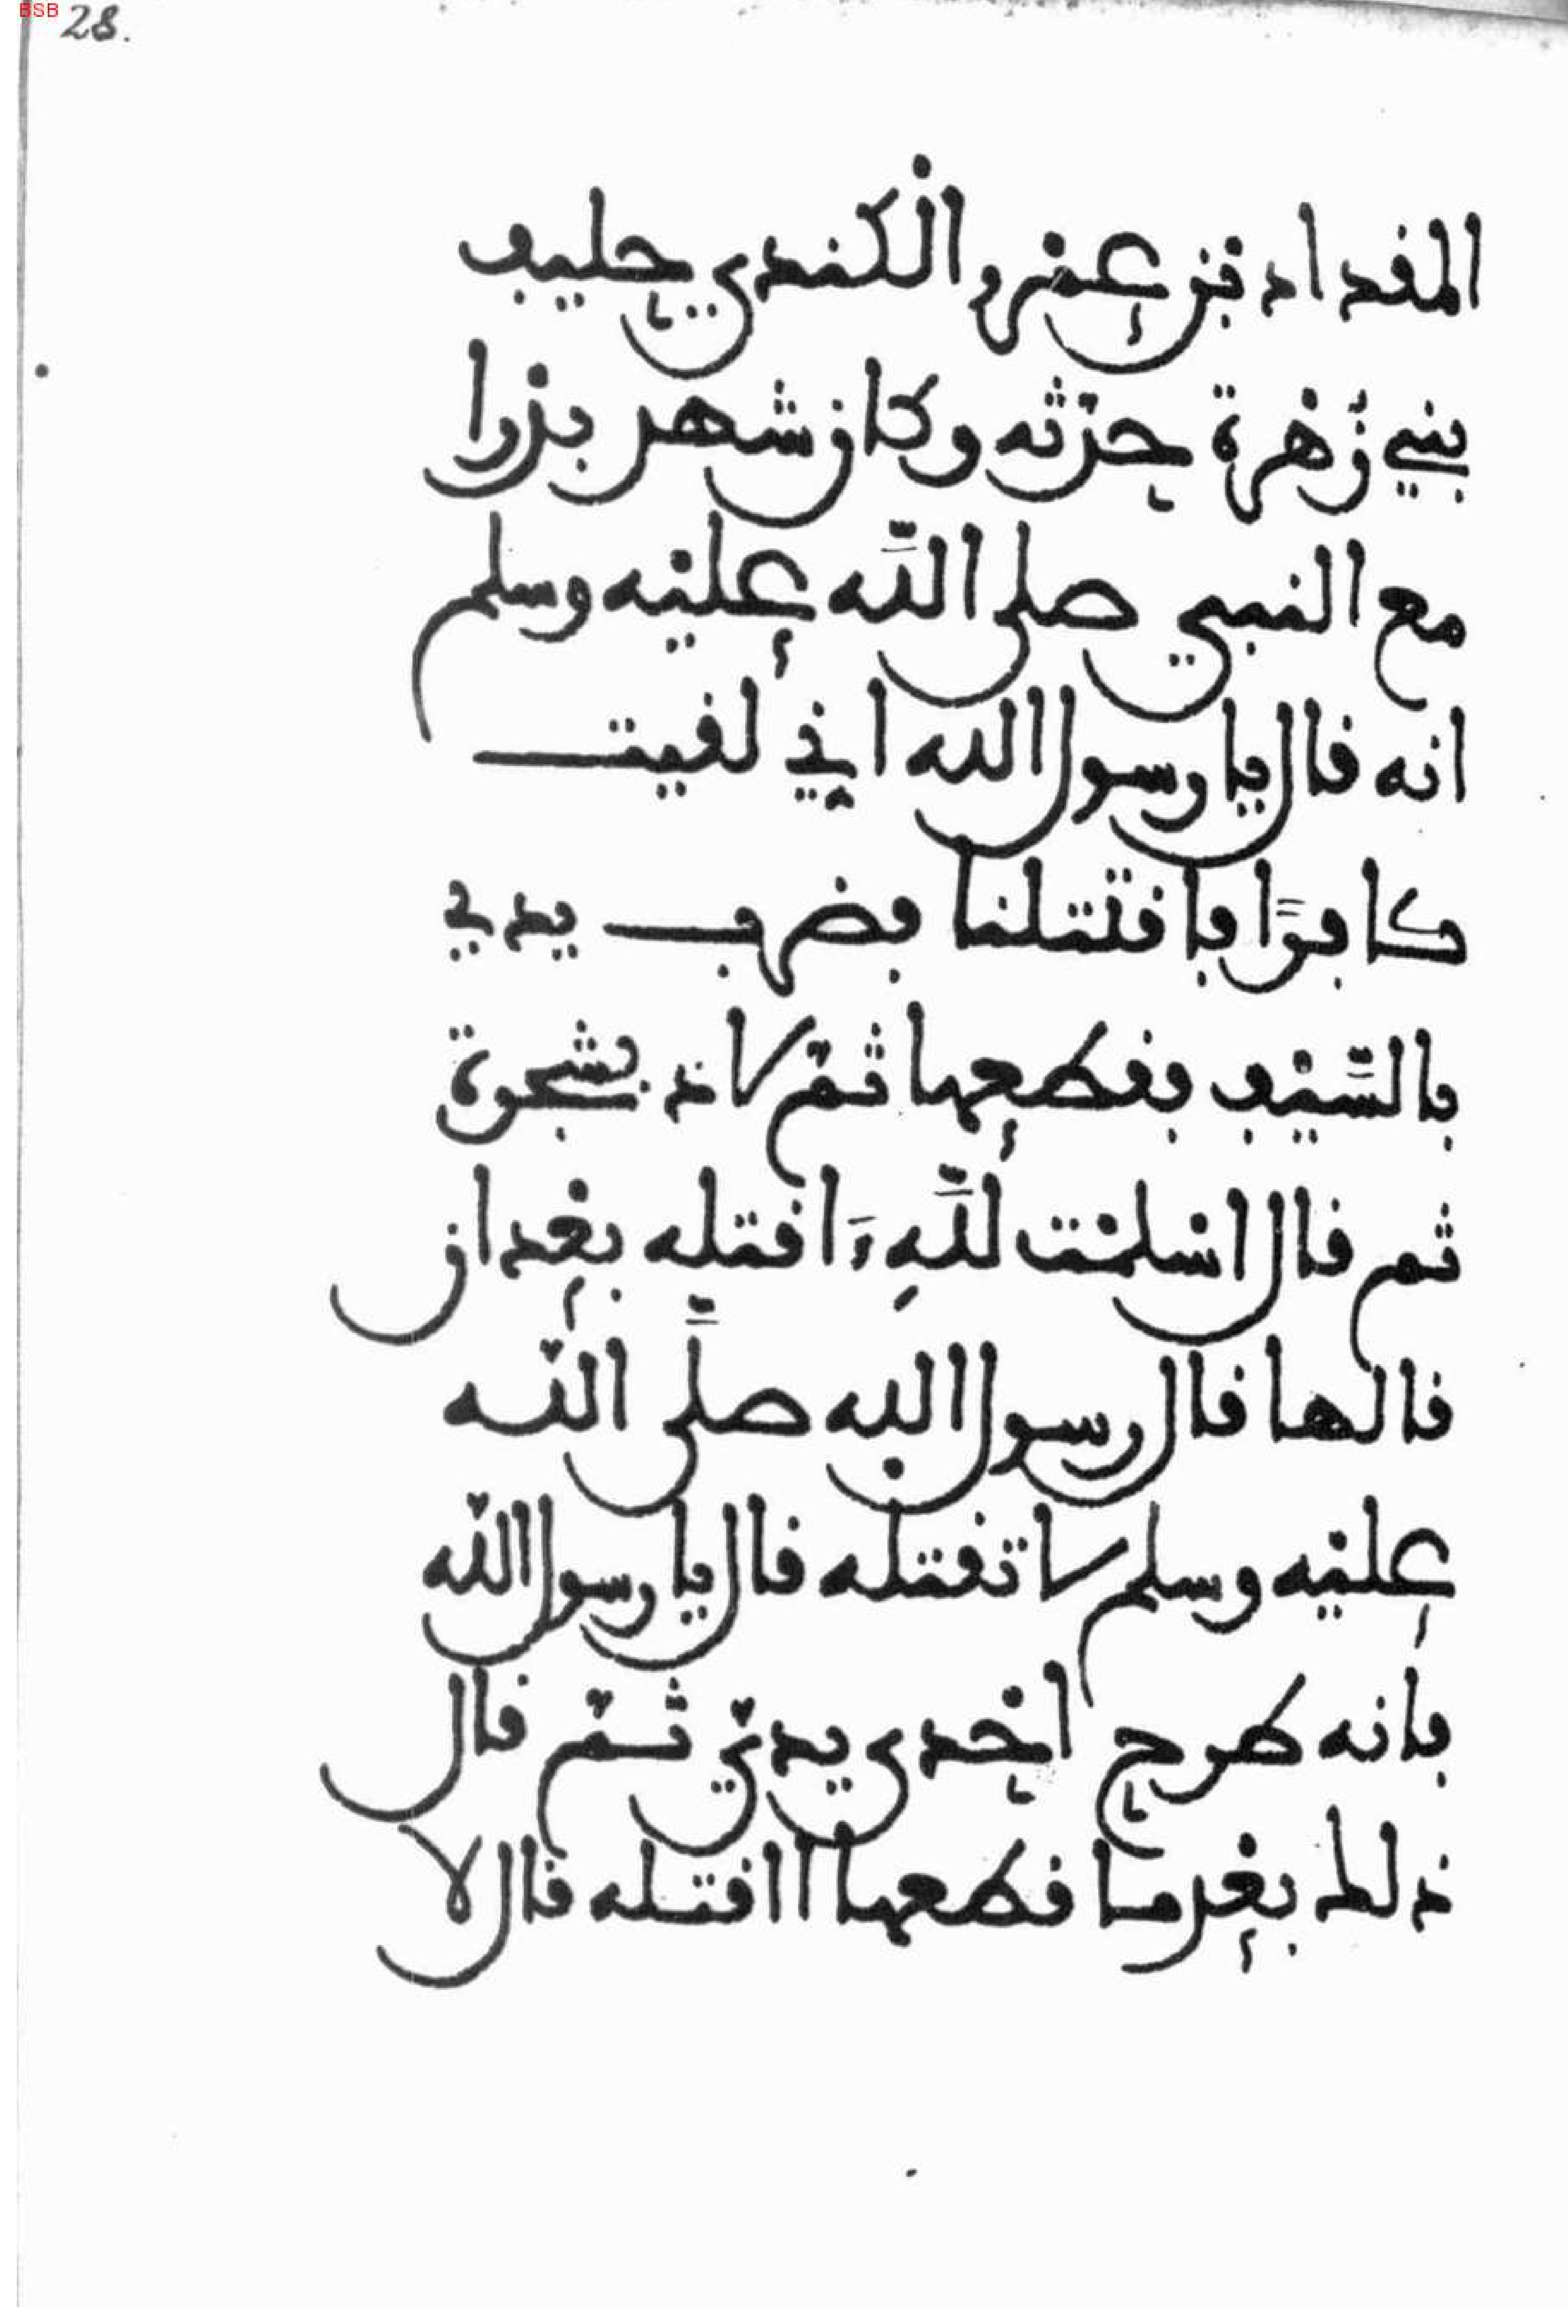 BSB
28.
المقداد بن عمرو الكندي حليف
بني زهرة حدثه وكان شهد بدرا
مع النبي صلى الله عليه وسلم
انه قال يا رسول الله اني لقيت
كافرا فاقتتلنا فضرب يدي
بالسيف فقطعها ثم لاذ بشجرة
ثم قال اسلمت لله ءاقتله بعد ان
قالها قال رسول الله صلى الله
عليه وسلم لا تقتله قال يا رسول الله
فانه طرح احدى يدي ثم قال
ذلك بعد ما قطعها ااقتله قال لا